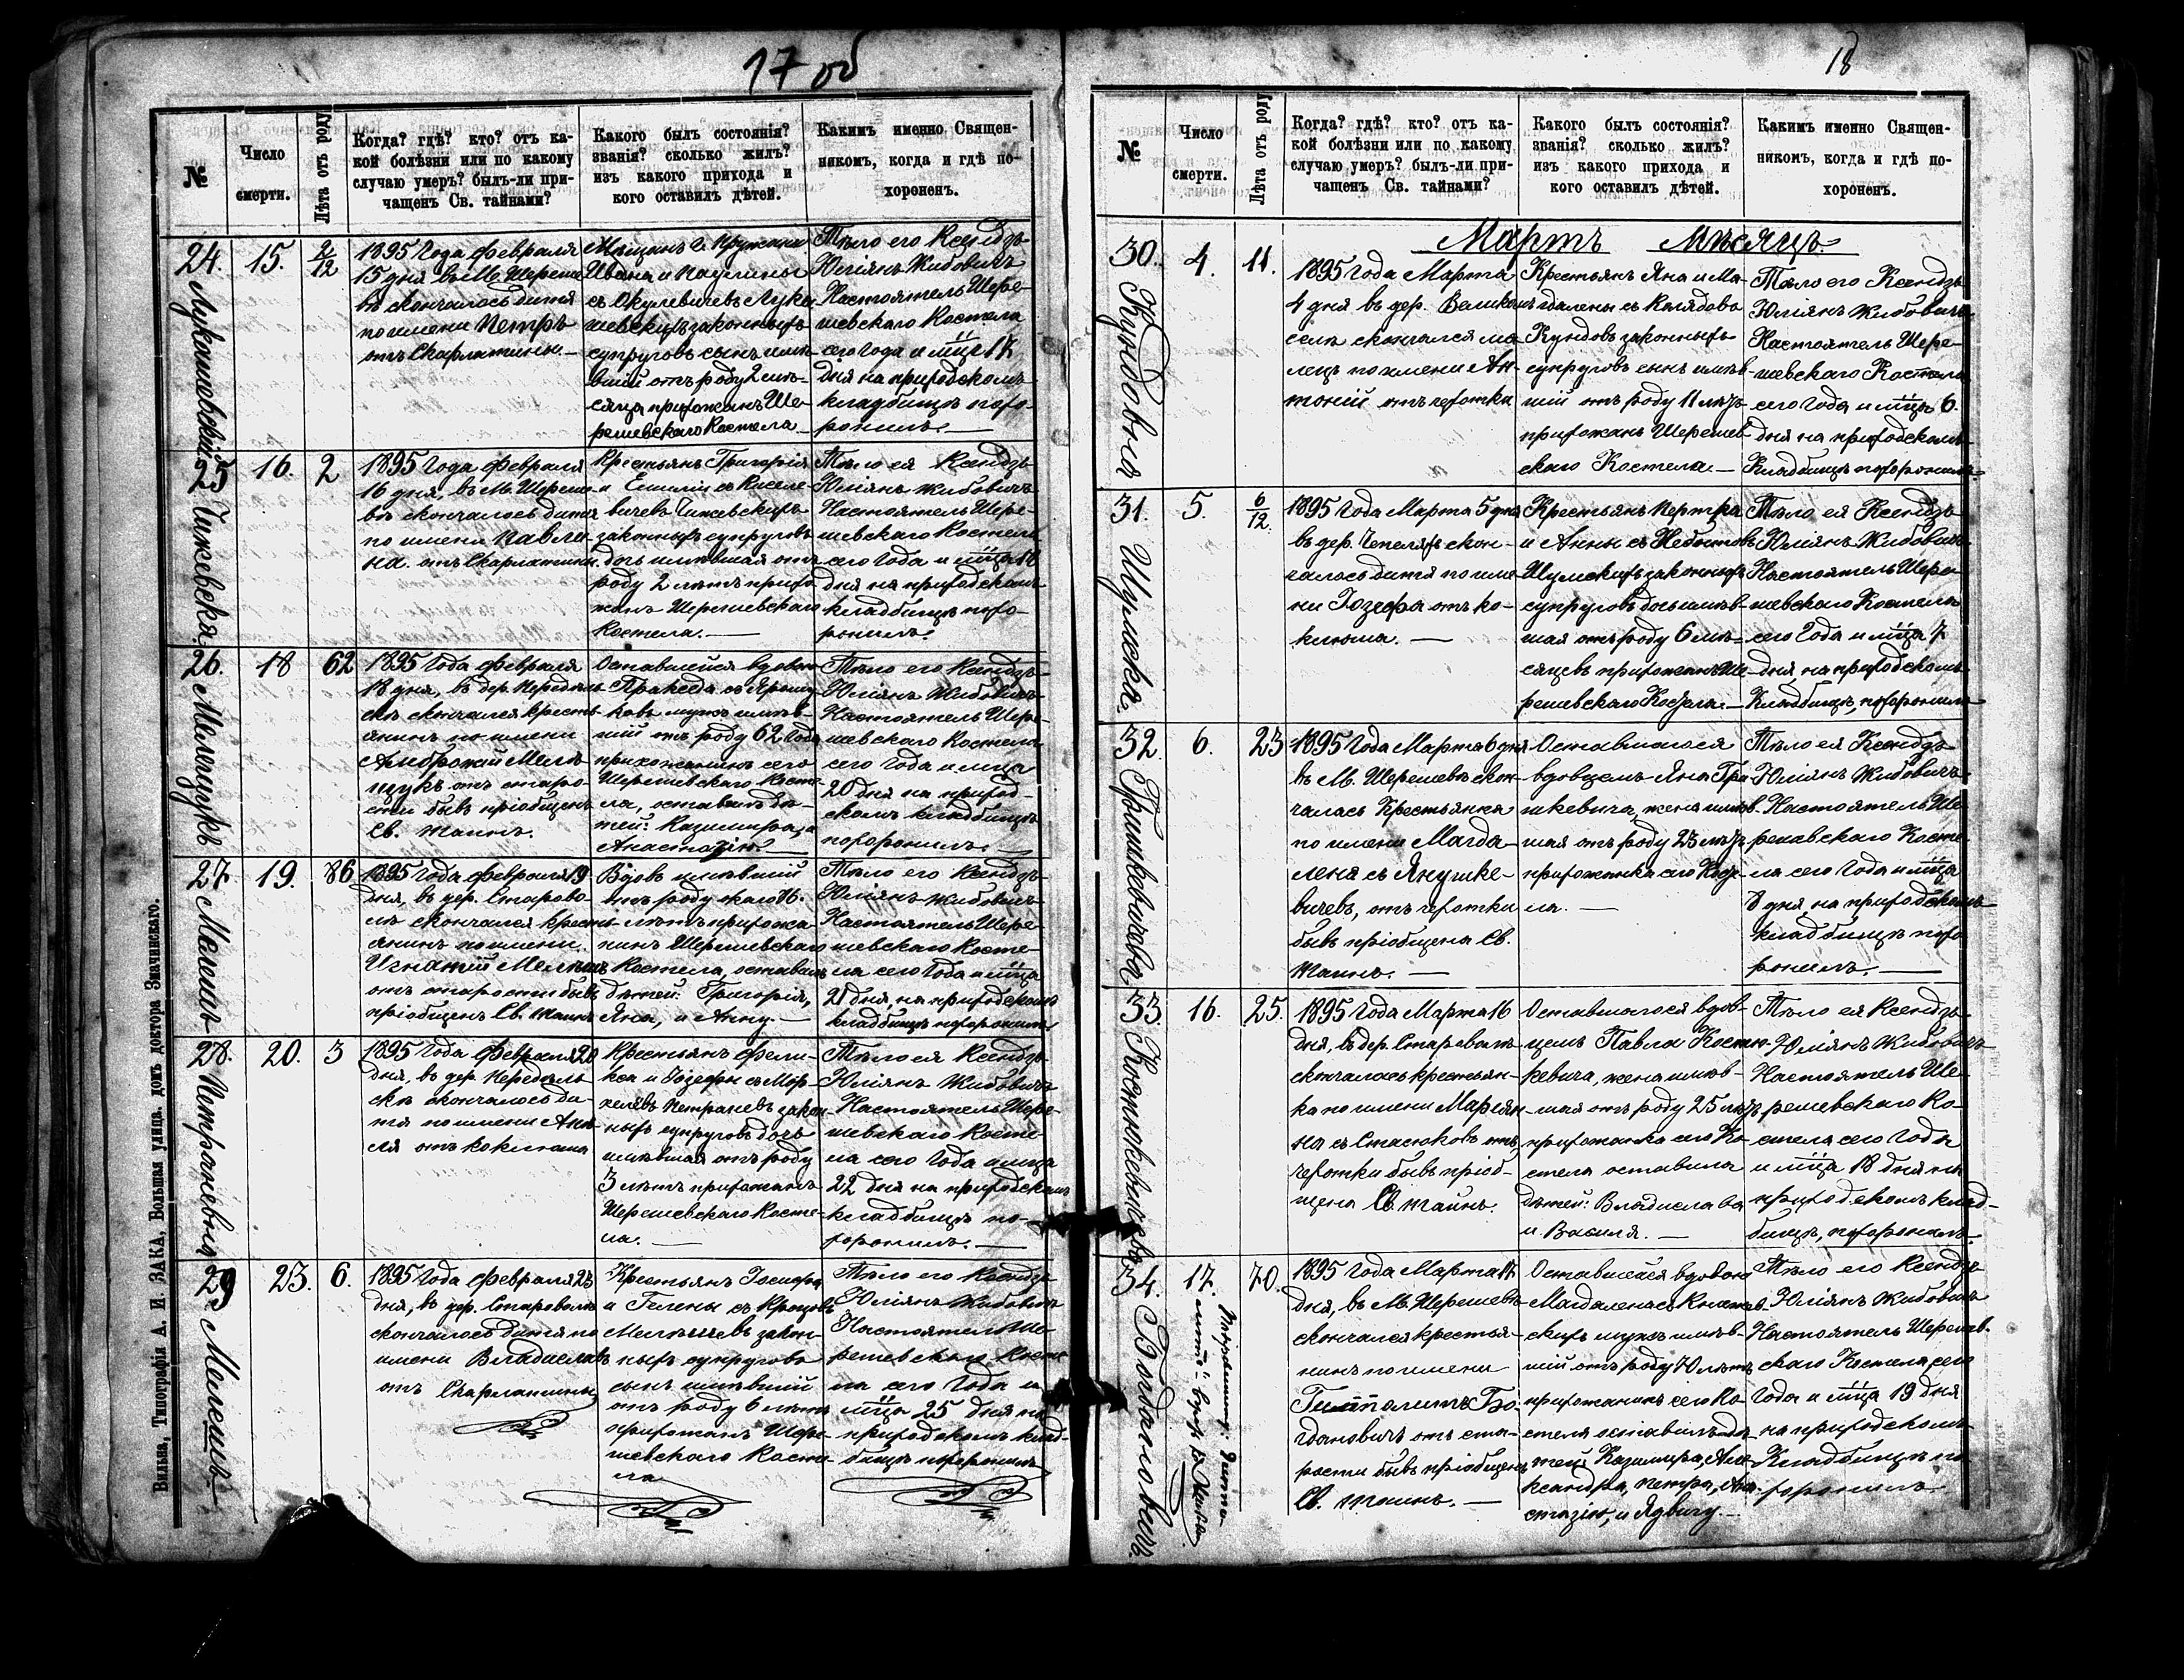 17 об
№
Число
смерти.
Лѣта отъ роду
Когда? гдѣ? кто? отъ ка-
кой болѣзни или по какому
случаю умеръ? былъ-ли при-
чащенъ Св. тайнами?
Какого былъ состоянія?
званія? сколько жилъ?
изъ какого прихода и
кого оставилъ дѣтей.
Какимъ именно Священ-
никомъ, когда и гдѣ по-
хороненъ.
24.
15.
2/12
1895 Года Февраля
15 дня въ М. Шереше
въ скончалось дитя
по имени Петръ
отъ Скарлатины
Мѣщанъ г. Пружана
Ивана и
съ
законныхъ
супруговъ сынъ имѣ-
вшій отъ роду 2 мѣ-
сяца прихожанъ Ше-
решевскаго Костела
Тѣло его Ксендзъ
Юліянъ Жибовичъ
Настоятель Шере-
шевскаго Костела
сего года и мца 17
дня на приходскомъ
кладбищѣ похо-
ронилъ.
25
Чижевская
16.
2
1895 Года Февраля
16 дня, въ М. Шереше-
вѣ скончалось дитя
по имени Павли-
на отъ Скарлатины.
Крестьянъ Григорія
и Емиліи съ Киселе-
вичевъ Чижевскихъ
законныхъ супруговъ
дочь имѣвшая отъ
роду 2 лѣтъ прихо-
жанъ Шерешевскаго
Костела.
Тѣло ея Ксендзъ
Юліянъ Жибовичъ
Настоятель Шере-
шевскаго Костела
сего Года и мца 18
дня на приходскомъ
кладбищѣ похо-
ронилъ.
26.
Мелещукъ
18
62
1895 Года Февраля
18 дня, въ дер. Передѣль
скѣ скончался кресть-
янинъ по имени
Амброжій Меле-
щукъ отъ старо-
сти бывъ пріобщенъ
Св. Таинъ.
Оставшейся вдовою
Пракседы съ
мужъ имѣв-
шій отъ роду 62 Года
прихожанинъ сего
Шерешевскаго Косте-
ла, оставилъ дѣ-
тей: Казимира, и
Анастазію.
Тѣло его Ксендзъ
Юліянъ Жибовичъ
Настоятель Шере-
шевскаго Костела
сего Года и мца
20 дня на приход-
скомъ кладбищѣ
похоронилъ.
27
Мелешъ
19.
86
1895 Года Февраля 19
дня, въ дер. Старово-
лѣ скончался кресть
янинъ по имени
Игнатій Мелешъ
отъ старости бывъ
пріобщенъ Св. Таинъ
Вдовъ имѣвшій
отъ роду 86
лѣтъ прихожа-
нинъ Шерешевскаго
Костела, оставилъ
дѣтей: Григорія,
Яна, и Анну.
Тѣло его Ксендзъ
Юліянъ Жибовичъ
Настоятель Шере-
шевскаго Косте-
ла сего Года и мца
21 дня, на приходскомъ
кладбищѣ похоронилъ
28.
Петраневна
20.
3
1895 Года Февраля 20
дня, въ дер. Передѣль
скѣ скончалось ди-
тя по имени Анѣ-
ля отъ коклюша
Крестьянъ Фели-
кса и Іозефы съ Мор-
Петраневъ закон-
ныхъ супруговъ дочь
имѣвшая отъ роду
3 лѣтъ прихожанъ
Шерешевскаго Косте-
ла.
Тѣло ея Ксендзъ
Юліянъ Жибовичъ
Настоятель Шере-
шевскаго Косте-
ла сего Года и мца
22 дня на приходскомъ
кладбищѣ по-
хоронилъ.
29
Мелешъ
23.
6.
1895 Года Февраля 23
дня, въ дер. Староволѣ
скончалось дитя по
имени Владиславъ
отъ Скарлатины
Крестьянъ Госифа
и Гелены съ
Мелешевъ закон-
ныхъ супруговъ
сынъ имѣвшій
отъ роду 6 лѣтъ
прихожанъ Шере-
шевскаго Косте-
ла
Тѣло его Ксендзъ
Юліянъ Жибовичъ
Настоятель Ше-
решевскаго Косте-
ла сего Года и
мца 25 дня на
приходскомъ клад-
бищѣ похоронилъ
Вильна, Типографія А. И. ЗАКА, Большая улица. домъ доктора Значинскаго.
18
№
Число
смерти.
Лѣта отъ роду
Когда? гдѣ? кто? отъ ка-
кой болѣзни или по какому
случаю умеръ? былъ-ли при-
чащенъ Св. тайнами?
Какого былъ состоянія?
званія? сколько жилъ?
изъ какого прихода и
кого оставилъ дѣтей.
Какимъ именно Священ-
никомъ, когда и гдѣ по-
хороненъ.
Мартъ Мѣсяцъ
30.
4.
11.
1895 Года Марта
4 дня въ дер. Великом
селѣ скончался ма-
лецъ по имени Ан-
тоній отъ чахотки
Крестьянъ Яна и Ма-
гдалены съ Калядовъ
Кундовъ законныхъ
супруговъ сынъ имѣв-
шій отъ роду 11 лѣтъ
прихожанъ Шерешев-
скаго Костела.
Тѣло его Ксендзъ
Юліянъ Жибовичъ
Настоятель Шере-
шевскаго Костела
сего Года и мца 6.
дня на приходскомъ
Кладбищѣ похоронилъ
31.
Шумская.
5.
6/12.
1895 Года Марта 5 дня
въ дер. Чепеляхъ скон-
чалось дитя по име-
ни Іозефа отъ ко-
клюша.
Крестьянъ Пертра
и Анны съ
Шумскихъ законныхъ
супруговъ дочь имѣв-
шая отъ роду 6 мѣ-
сяцевъ прихожанъ Ше-
решевскаго Костела.
Тѣло ея Ксендзъ
Юліянъ Жибовичъ
Настоятель Шере-
шевскаго Костела
сего Года и мца 7
дня, на приходскомъ
Кладбищѣ, похоронилъ
32
Гришкевичова
6.
23
1895 Года Марта 6 дня
въ М. Шерешевѣ скон-
чалась Крестьянка
по имени Магда-
лена съ Янушке-
вичевъ, отъ чахотки
бывъ пріобщена Св.
Таинъ.
Оставшагося
вдовцемъ Яна Гри-
шкевича, жена имѣв.
шая отъ роду 23 лѣтъ
прихожанка сего Косте-
ла.
Тѣло ея Ксендзъ
Юліянъ Жибовичъ
Настоятель Ше-
решевскаго Косте-
ла сего Года и мца
8 дня, на приходскомъ
кладбищѣ похо
ронилъ.
33.
Костюкевичова
16.
25.
1895 Года Марта 16
дня, въ дер. Староволѣ
скончалась крестьян-
ка по имени Марьян-
на съ Стасюковъ отъ
чахотки бывъ пріоб-
щена Св. Таинъ.
Оставшагося вдов-
цемъ Павла Костю-
кевича, жена имѣв-
шая отъ роду 25 лѣтъ
прихожанка сего Ко-
стела оставила
дѣтей: Владислава
и Василя.
Тѣло ея Ксендзъ
Юліянъ Жибовичъ
Настоятель Ше-
решевскаго Ко-
стела сего Года
и мца 18 дня на
приходскомъ клад-
бищѣ, похоронилъ
34.
Богдановичъ
17.
70.
1895 Года Марта 17
дня, въ М. Шерешевѣ
скончался крестья-
нинъ по имени
Гипполитъ Бо-
гдановичъ отъ ста-
рости бывъ пріобщенъ
Св. Таинъ.
Оставшейся вдовою
Магдалены съ
скихъ мужъ имѣв-
шій отъ роду 70 лѣтъ
прихожанинъ сего Ко-
стела оставилъ дѣ-
тей Казимира, Але-
ксандра, Петра, Ана-
стазію, и Ядвигу.
Тѣло его Ксендзъ
Юліянъ Жибовичъ
Настоятель Шерешев.
скаго Костела, сего
Года и мца 19 дня
на приходскомъ
Кладбищѣ по
хоронилъ